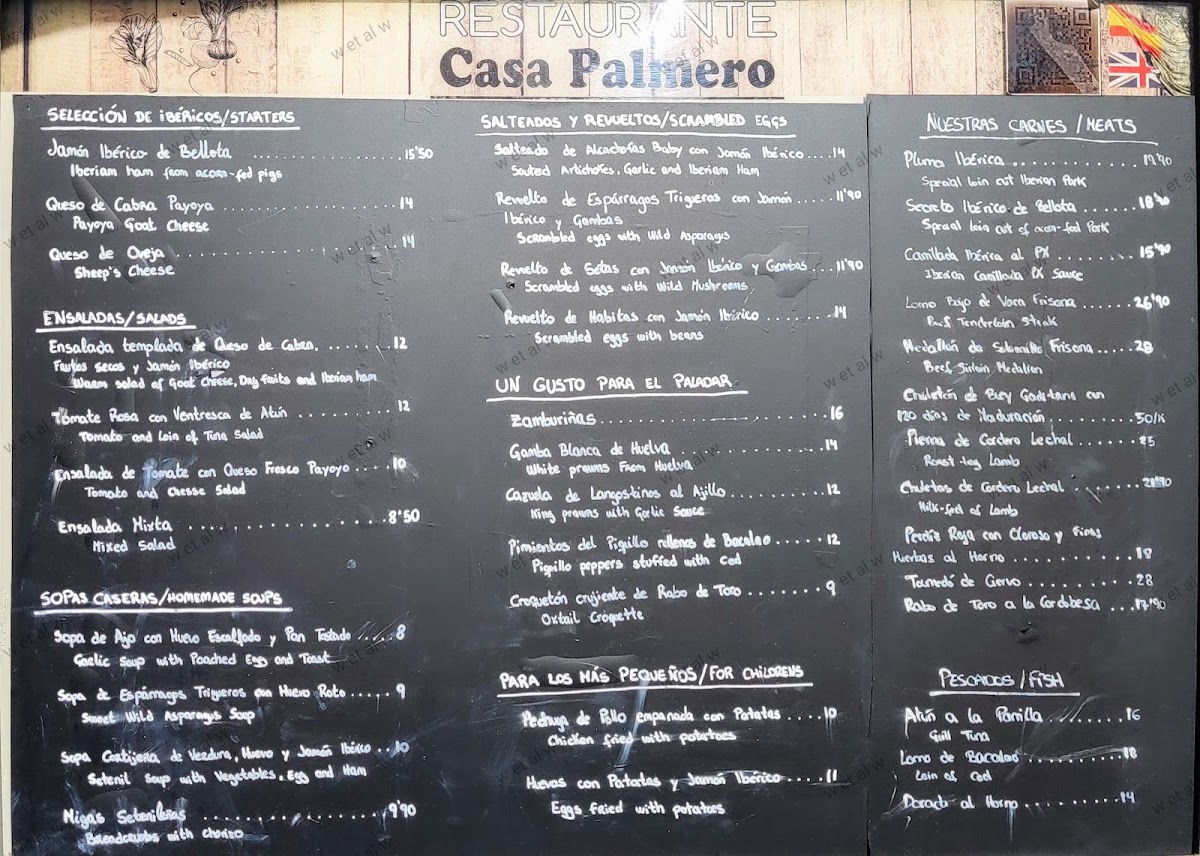 RESTAURANTE
Casa Palmero
SELECCIÓN DE IBÉRICOS/STARTERS
Jamón Ibérico de Bellota .................. 15'50
Iberiam ham from acorn-fed pigs
Queso de Cabra Payoya .................. 14
Payoya Goat Cheese
Queso de Oveja .................. 14
Sheep's Cheese
ENSALADAS/SALADS
Ensalada templada de Queso de Cabra, ........ 12
Frutos secos y Jamón Ibérico
Warm salad of Goat Cheese, Day fruits and Iberian ham
Tomate Rosa con Ventresca de Atún .......... 12
Tomato and Loin of Tuna Salad
Ensalada de Tomate con Queso Fresco Payoyo .... 10
Tomato and Chesse Salad
Ensalada Mixta .................. 8'50
Mixed Salad
SOPAS CASERAS/HOMEMADE SOUPS
Sopa de Ajo con Huevo Escalfado y Pan Tostado ..... 8
Gaelic Soup with Poached Egg and Toast
Sopa de Espárragos Trigueros con Huevo Roto ..... 9
Sweet Wild Asparagus Soup
Sopa Cortijera de Verdura, Huevo y Jamón Ibérico .. 10
Setenil Soup with Vegetables, Egg and Ham
Migas Setenileñas .................. 9'90
Breadcrumbs with chorizo
SALTEADOS Y REVUELTOS/SCRAMBLED EGGS
Salteado de Alcachofas Baby con Jamón Ibérico .... 14
Sauted Artichokes, Garlic and Iberiam Ham
Revuelto de Espárragos Trigueros con Jamón ..... 11'90
Ibérico y Gambas
Scrambled eggs with Wild Asparagus
Revuelto de Setas con Jamón Ibérico y Gambas ... 11'90
Scrambled eggs with Wild Mushrooms
Revuelto de Habitas con Jamón Ibérico ......... 14
Scrambled eggs with beans
UN GUSTO PARA EL PALADAR
Zamburiñas .................. 16
Gamba Blanca de Huelva .................. 14
White prawns From Huelva
Cazuela de Langostinos al Ajillo .......... 12
King prawns with Garlic Sauce
Pimientos del Piquillo rellenos de Bacalao ...... 12
Piquillo peppers stuffed with Cod
Croquetón crujiente de Rabo de Toro ......... 9
Oxtail Croquette
PARA LOS MÁS PEQUEÑOS/FOR CHILDRENS
Pechuga de Pollo empanada con Patatas .... 10
Chicken fried with potatoes
Huevos con Patatas y Jamón Ibérico ..... 11
Eggs fried with potatoes
NUESTRAS CARNES/MEATS
Pluma Ibérica .................. 19'90
Special loin cut Iberian Pork
Secreto Ibérico de Bellota ........ 18'90
Special loin cut of acorn-feed Pork
Carrillada Ibérica al PX ........ 15'90
Iberian Carrillada PX Sauce
Lomo Bajo de Vaca Frisona ....... 26'90
Beef Tenderloin Steak
Medallón de Solomillo Frisona ..... 28
Beef Sirloin Medallion
Chuletón de Buey Gaditano con
120 días de Maduración .......... 50/K
Pierna de Cordero Lechal ........ 25
Roast leg Lamb
Chuletas de Cordero Lechal ........ 21'90
Milk-feed of Lamb
Perdiz Roja con Oloroso y Finas
Hierbas al Horno .............. 18
Tournedó de Ciervo ............ 28
Rabo de Toro a la Cordobesa .... 17'90
PESCADOS/FISH
Atún a la Parrilla ......... 16
Grill Tuna
Lomo de Bacalao .......... 18
Loin of Cod
Dorada al Horno .......... 14